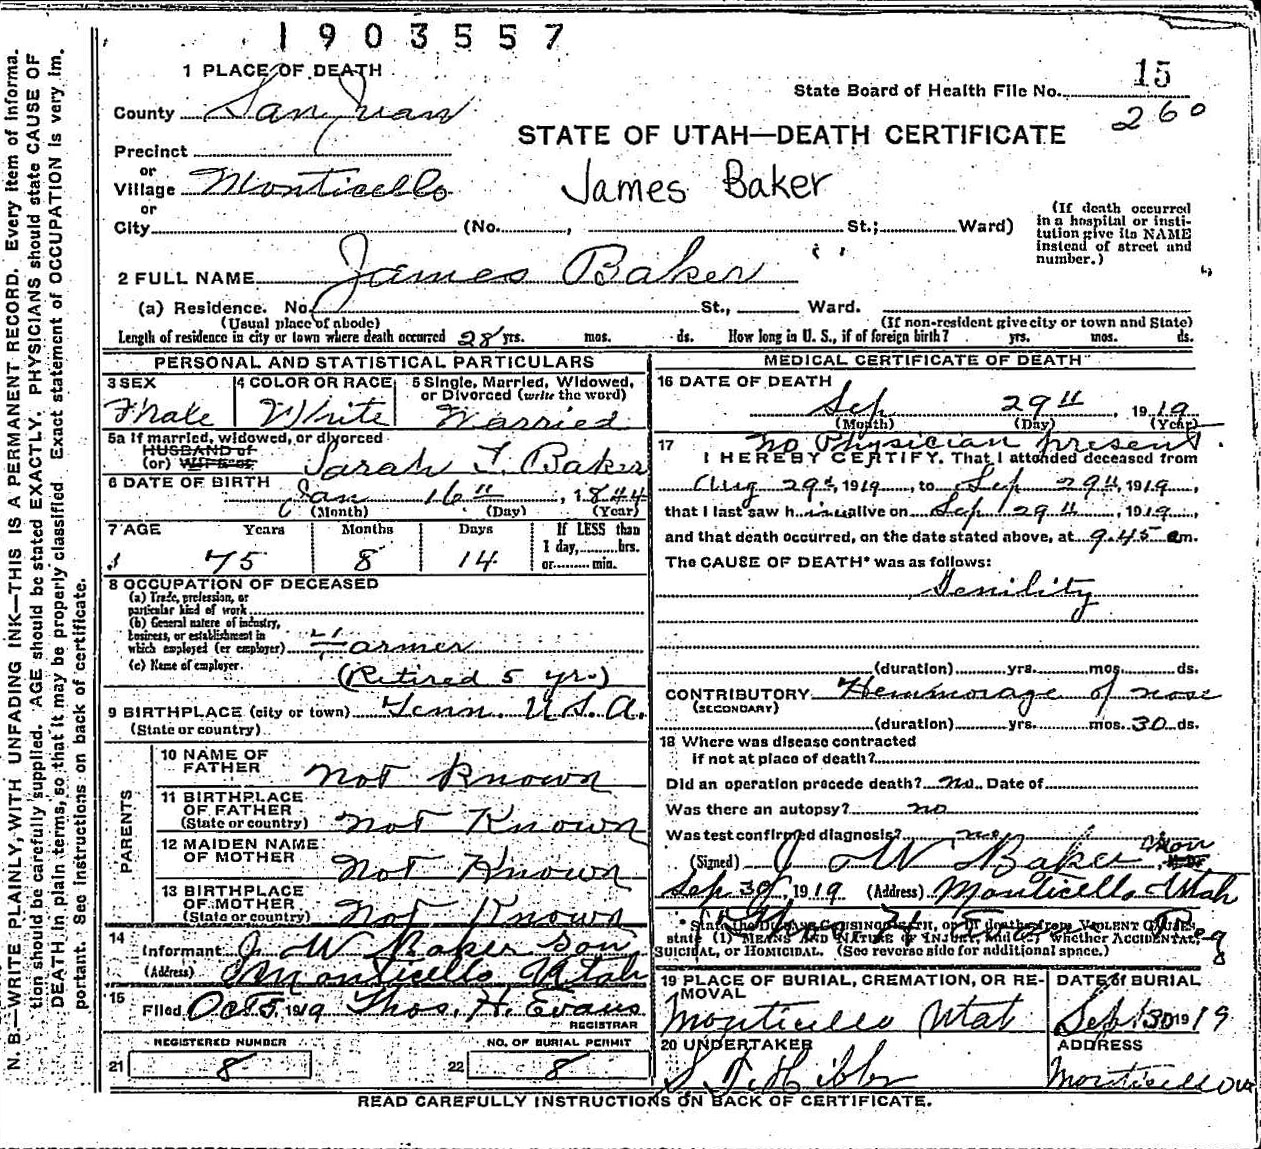 1903557
1 PLACE OF DEATH
15
State Board of Health File No.
260
County San Juan
STATE OF UTAH—DEATH CERTIFICATE
Precinct
or
Village Monticello
James Baker
or
City (No. , St.; Ward)
(If death occurred in a hospital or insti-
tution give its NAME
instead of street and
number.)
2 FULL NAME James Baker
(a) Residence. No. St., Ward.
(Usual place of abode) (If non-resident give city or town and State)
Length of residence in city or town where death occurred 28 yrs. mos. ds. How long in U. S., if of foreign birth? yrs. mos. ds.
PERSONAL AND STATISTICAL PARTICULARS
3 SEX Male
4 COLOR OR RACE White
5 Single, Married, Widowed, or Divorced (write the word) Married
5a If married, widowed, or divorced
HUSBAND of
(or) WIFE of Sarah T. Baker
6 DATE OF BIRTH Jan 16th, 1844
(Month) (Day) (Year)
7 AGE Years Months Days If LESS than
1 day, hrs.
or min.
75 8 14
8 OCCUPATION OF DECEASED
(a) Trade, profession, or
particular kind of work
(b) General nature of industry,
business, or establishment in
which employed (or employer) Farmer
(c) Name of employer
(Retired 5 yr.)
9 BIRTHPLACE (city or town) Tenn. U.S.A.
(State or country)
PARENTS
10 NAME OF
FATHER Not Known
11 BIRTHPLACE
OF FATHER
(State or country) Not Known
12 MAIDEN NAME
OF MOTHER Not Known
13 BIRTHPLACE
OF MOTHER
(State or country) Not Known
14
Informant J. W. Baker son
(Address) Monticello Utah
15
Filed Oct 5, 1919 Thos. H. Evans
REGISTRAR
REGISTERED NUMBER NO. OF BURIAL PERMIT
21 8 22 8
MEDICAL CERTIFICATE OF DEATH
16 DATE OF DEATH
Sep 29th, 1919
(Month) (Day) (Year)
17 No Physician present.
I HEREBY CERTIFY. That I attended deceased from
Aug 29th, 1919, to Sep 29th, 1919,
that I last saw him alive on Sep 29th, 1919,
and that death occurred, on the date stated above, at 9.45 am.
The CAUSE OF DEATH* was as follows:
Senility
(duration) yrs. mos. ds.
CONTRIBUTORY Hemmorage of nose
(SECONDARY)
(duration) yrs. mos. 30 ds.
18 Where was disease contracted
If not at place of death?
Did an operation precede death? No. Date of
Was there an autopsy? no
Was test confirmed diagnosis? no
(Signed) J W Baker Son
Sep 30, 1919 (Address) Monticello Utah
Thos H Evans Reg
* State the DISEASE CAUSING DEATH, or in deaths from VIOLENT CAUSES,
state (1) MEANS AND NATURE OF INJURY, and (2) whether ACCIDENTAL,
SUICIDAL, or HOMICIDAL. (See reverse side for additional space.)
19 PLACE OF BURIAL, CREMATION, OR RE-
MOVAL
Monticello Utah
DATE of BURIAL
Sep 30 1919
20 UNDERTAKER
ADDRESS
Monticello
READ CAREFULLY INSTRUCTIONS ON BACK OF CERTIFICATE.
N. B.—WRITE PLAINLY, WITH UNFADING INK—THIS IS A PERMANENT RECORD. Every item of informa-
tion should be carefully supplied. AGE should be stated EXACTLY. PHYSICIANS should state CAUSE OF
DEATH in plain terms, so that it may be properly classified. Exact statement of OCCUPATION is very im-
portant. See instructions on back of certificate.